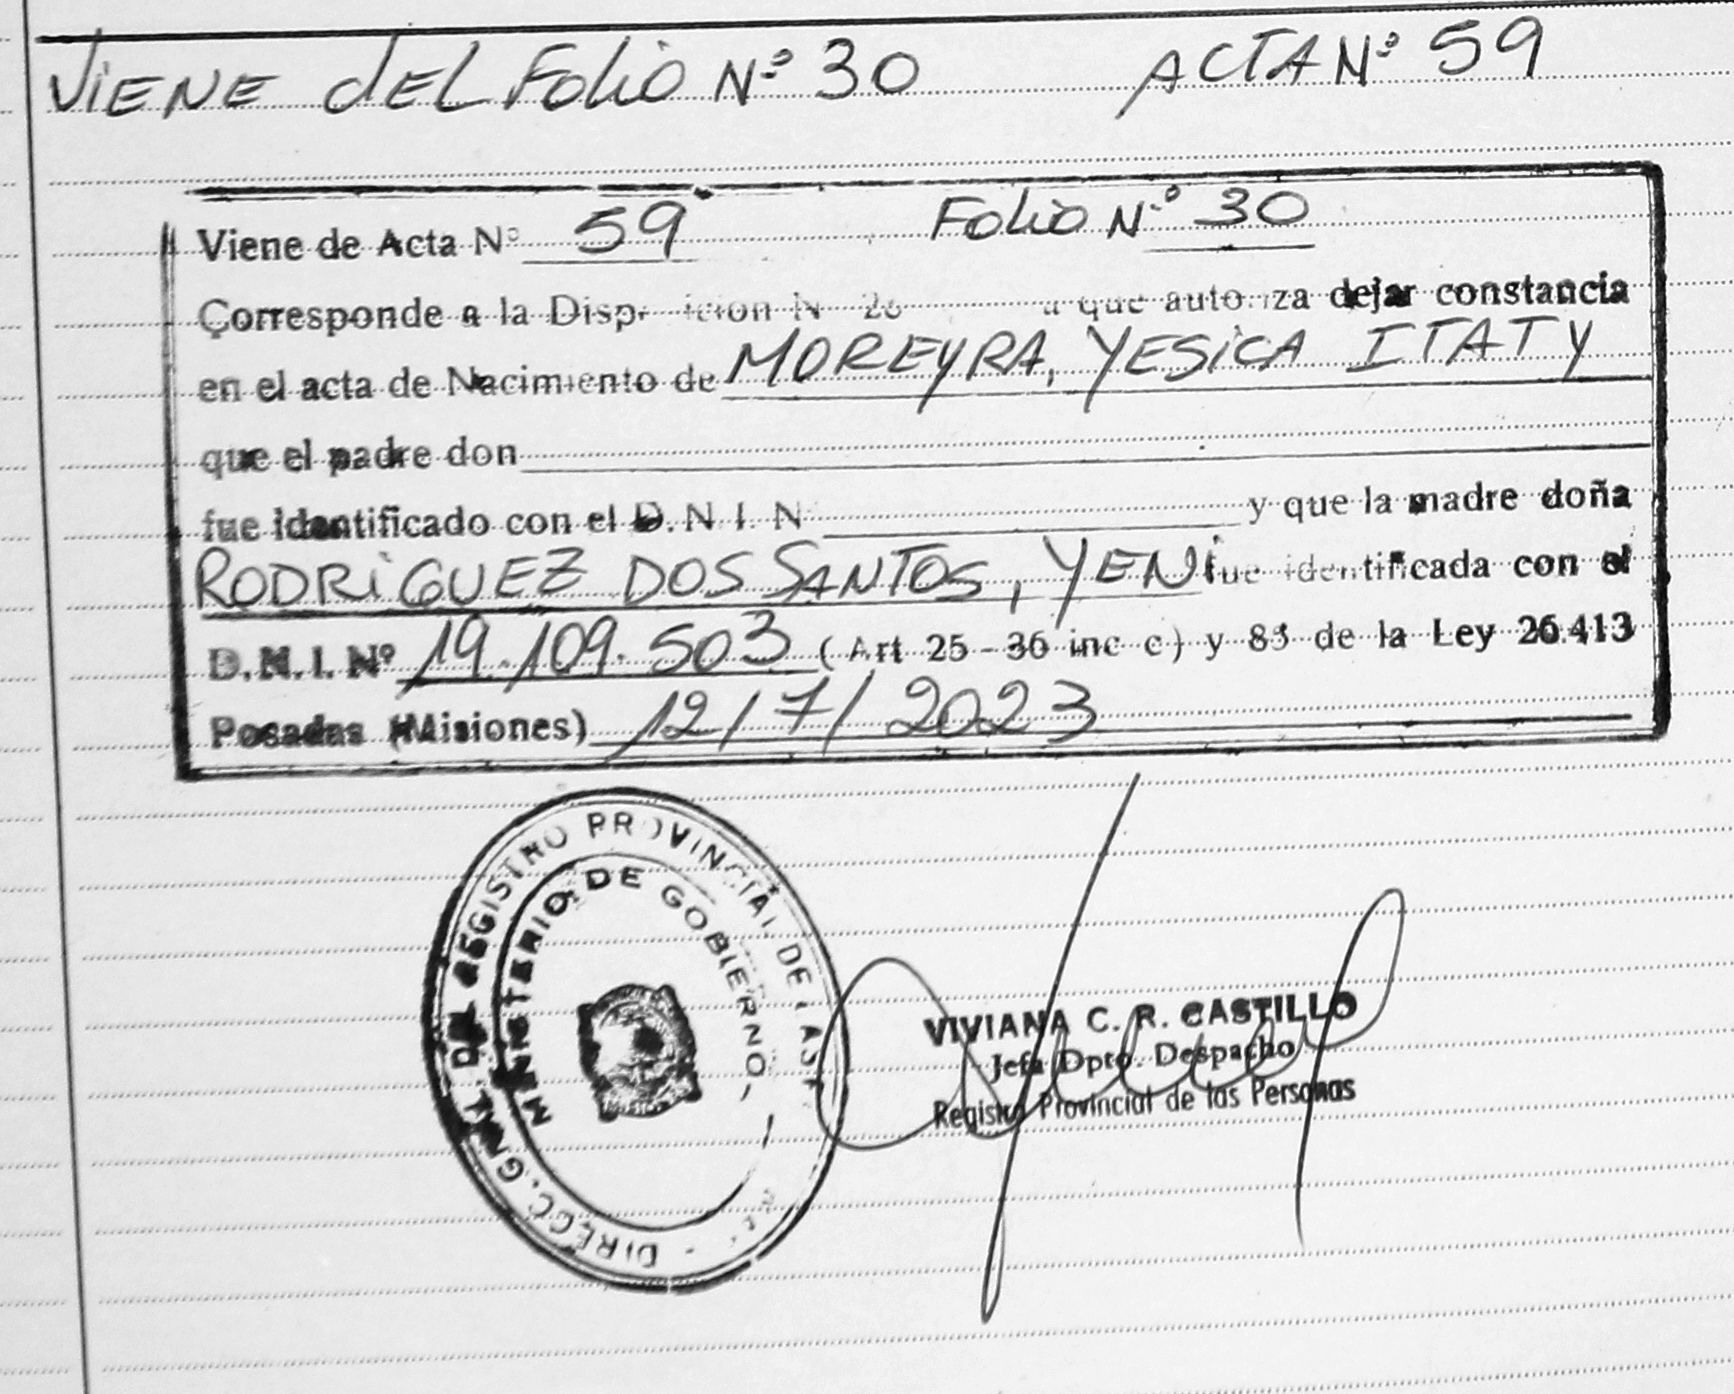 VIENE DEL FOLIO Nº 30 ACTA Nº 59
Viene de Acta Nº 59 FOLIO Nº 30
Corresponde a la que autoriza dejar constancia
en el acta de Nacimiento de MOREYRA, YESICA ITATY
que el padre don
fue identificado con el D.N.I. N y que la madre doña
RODRIGUEZ DOS SANTOS, YENI fue identificada con el
D.N.I. Nº 19.109.503 (Art 25-36 inc c) y 85 de la Ley 26.413
Posadas (Misiones) 12/7/2023
DIRECC. GRAL. DEL REGISTRO PROVINCIAL DE LAS
MINISTERIO DE GOBIERNO
VIVIANA C. R. CASTILLO
Jefa Dpto. Despacho
Registro Provincial de las Personas